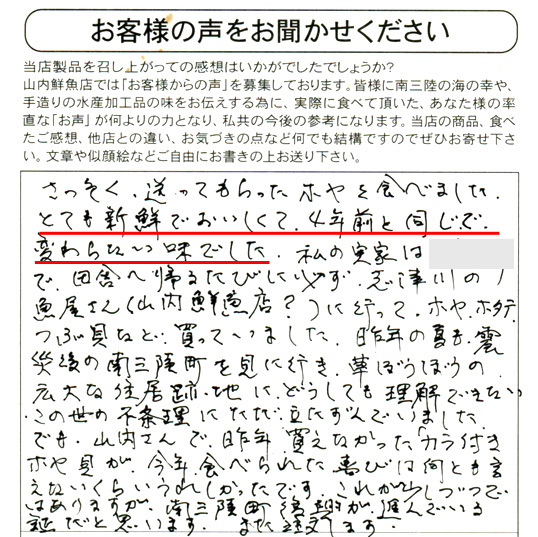 お客様の声をお聞かせください
当店製品を召し上がっての感想はいかがでしたでしょうか?
山内鮮魚店では「お客様からの声」を募集しております。皆様に南三陸の海の幸や、
手造りの水産加工品の味をお伝えする為に、実際に食べて頂いた、あなた様の率
直な「お声」が何よりの力となり、私共の今後の参考になります。当店の商品、食べ
たご感想、他店との違い、お気づきの点など何でも結構ですのでぜひお寄せ下さ
い。文章や似顔絵などご自由にお書きの上お送り下さい。
さっそく、送ってもらったホヤを食べました。
とても新鮮でおいしくて、4年前と同じで、
変わらない味でした。私の実家は
で、田舎へ帰るたびに必ず、志津川の
魚屋さん(山内鮮魚店?)に行って、ホヤ、ホタテ
つぶ貝など、買っていました。昨年の夏、震
災後の南三陸町を見に行き、草ぼうぼうの
広大な住居跡地に、どうしても理解できない
この世の不条理にただ立たずんでいました。
でも、山内さんで、昨年、買えなかった「カラ付き
ホヤ貝が、今年、食べられた喜びは何とも言
えないくらいうれしかったです。これが少しづつで
はありますが、南三陸町復興が、進んでいる
証だと思います。また注文します。